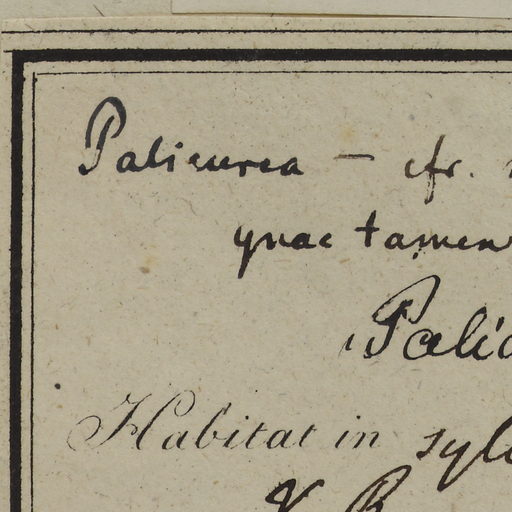 Palicurea — cfr.
quae tamen
Palic
Habitat in sylv